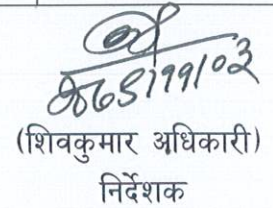 (शिवकुमार अधिकारी)
निर्देशक